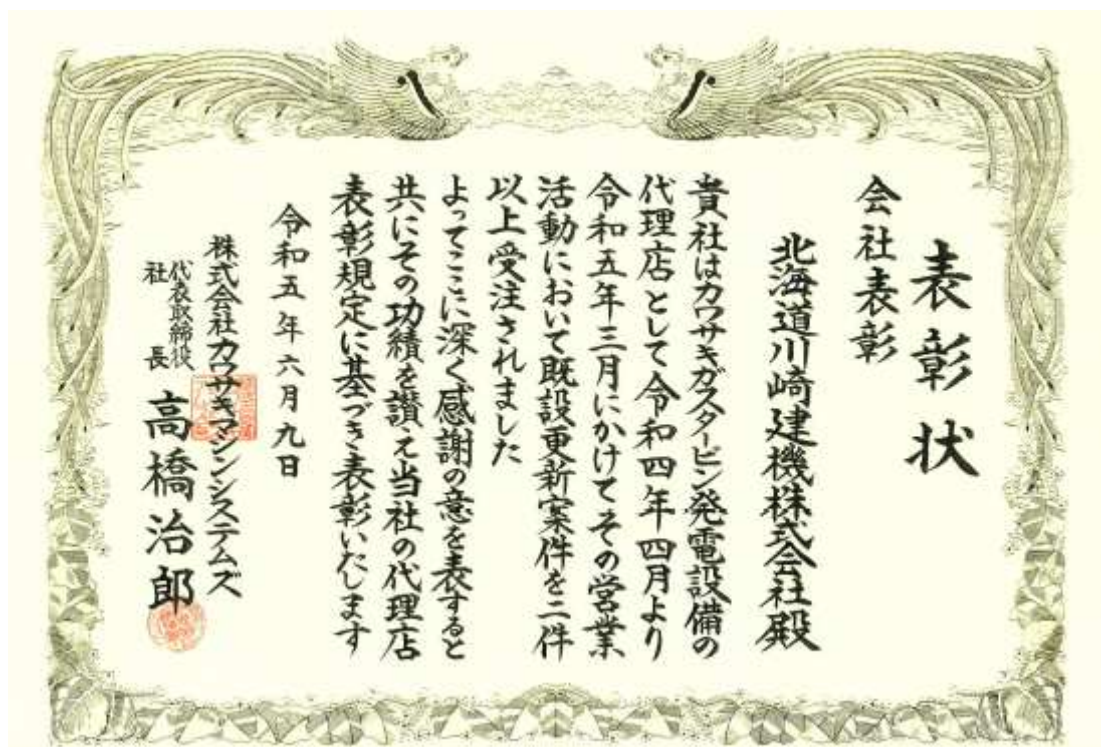 表彰状
会社表彰
北海道川崎建機株式会社殿
貴社はカワサキガスタービン発電設備の
代理店として令和四年四月より
令和五年三月にかけてその営業
活動において既設更新案件を二件
以上受注されました
よってここに深く感謝の意を表すると
共にその功績を讃え当社の代理店
表彰規定に基づき表彰いたします
令和五年六月九日
株式会社カワサキマシンシステムズ
代表取締役
社長
高橋治郎